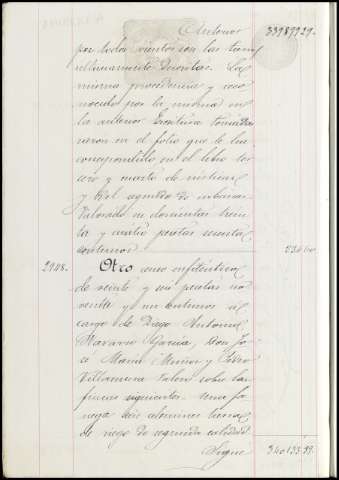 Antonio 33989929.
por todos vientos con las tierras
ultimamente descritas. La
misma procedencia y reco
nocido por la misma en
la anterior Escritura tomándose
razon en el folio que le ha
correspondido en el libro ter
cero y cuarto de rústicas
y del segundo de urbanas
Valorado en doscientas trein
ta y cuatro pesetas sesenta
centimos 234 60
2908. Otro censo enfitéutico
de veinte y seis pesetas no
venta y un centimos a
cargo de Diego Antonio
Navarro García, Don Jo
sé María Muñoz y Pedro
Villanueva sobre las
fincas siguientes. Una fa
nega seis celemines tierra
de riego de segunda calidad
Sigue 340133.99.